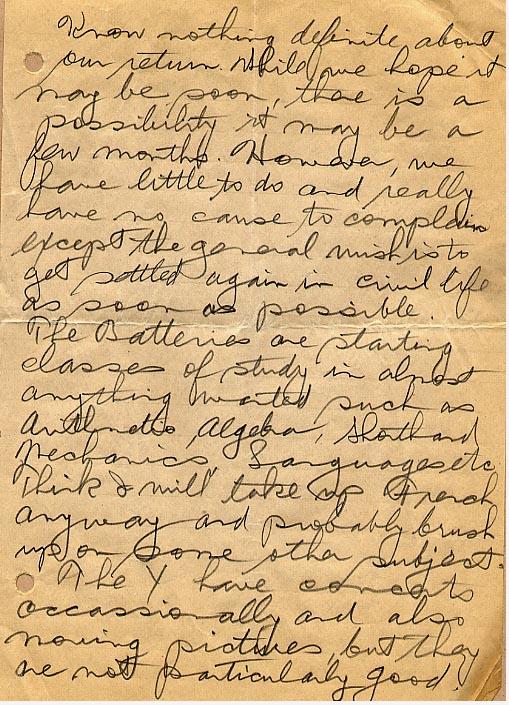 Know nothing definite about
our return. While we hope it
may be soon, there is a
possibility it may be a
few months. However, we
have little to do and really
have no cause to complain
except the general wish is to
get settled again in civil life
as soon as possible.
The Batteries are starting
classes of study in almost
anything wanted such as
Arithmetic, Algebra, Shorthand
Mechanics, Languages etc
Think I will take up French
anyway and probably brush
up on some other subject.
The Y have concerts
occassionally and also
moving pictures, but they
are not particularly good.